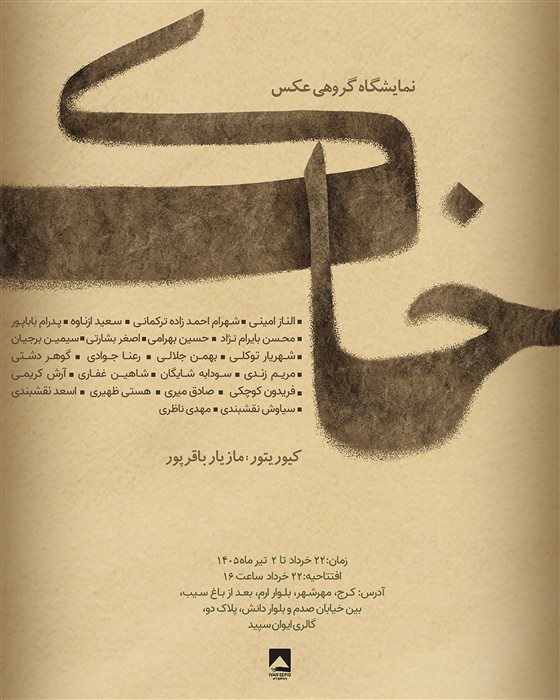 نمایشگاه گروهی عکس
خاک
■ الناز امینی ■ شهرام احمد زاده ترکمانی ■ سعید ازناوه ■ پدرام باباپور
■ محسن بایرام نژاد ■ حسین بهرامی ■ اصغر بشارتی ■ سیمین برجیان
■ شهریار توکلی ■ بهمن جلالی ■ رعنا جوادی ■ گوهر دشتی
■ مریم زندی ■ سودابه شایگان ■ شاهین غفاری ■ آرش کریمی
■ فریدون کوچکی ■ صادق میری ■ هستی ظهیری ■ اسعد نقشبندی
■ سیاوش نقشبندی ■ مهدی ناظری
کیوریتور: مازیار باقرپور
زمان: ۲۲ خرداد تا ۲ تیر ماه ۱۴۰۵
افتتاحیه: ۲۲ خرداد ساعت ۱۶
آدرس: کرج، مهرشهر، بلوار ارم، بعد از باغ سیب،
بین خیابان صدم و بلوار دانش، پلاک دو،
گالری ایوان سپید
IVAN SEPID
art gallery